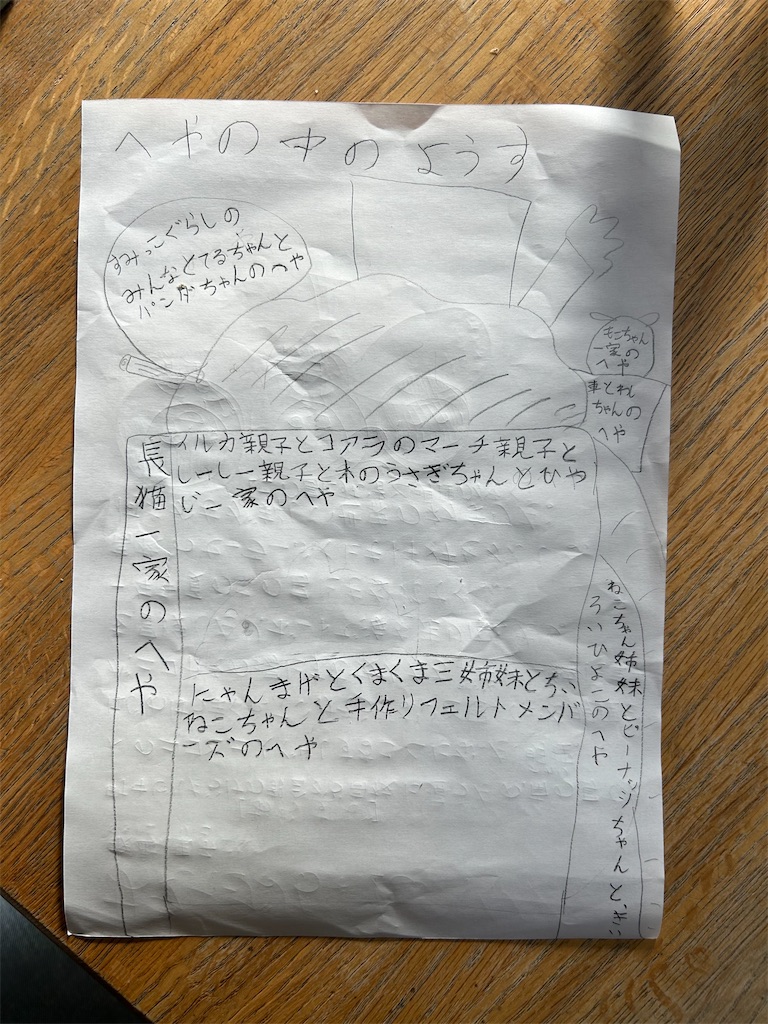 へやの中のようす
すみっこぐらしの
みんなとてるちゃんと
パンダちゃんのへや
もこちゃん
一家の
へや
車とわし
ちゃんの
へや
長猫一家のへや
イルカ親子とコアラのマーチ親子と
しーしー親子と木のうさぎちゃんとひや
じ一家のへや
ねこちゃん姉妹とピーナッツちゃんと、きい
ろいひよこのへや
にゃんまげとくまくま三姉妹とちい
ねこちゃんと手作りフェルトメンバ
ーズのへや